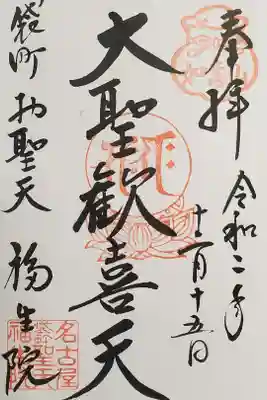 奉拝
令和二年
十一月十五日
大聖歓喜天
袋町 お聖天
福生院
名古屋